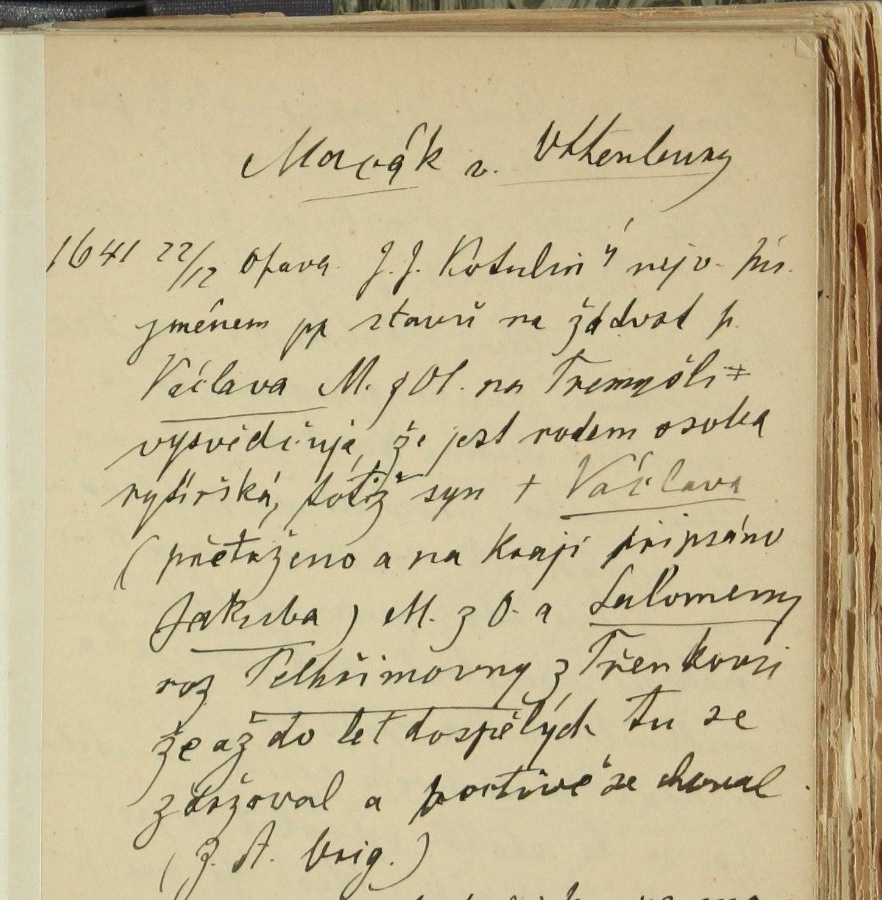 Morák v. Ottenburg
1641 22/12 Opava. J. J. Kotulin ý nejv. pís.
jménem pp stavů na žádost p.
Václava M. z Ol. na Tremyšli
vysvědčuje, že jest rodem osoba
rytířská, totiž syn + Václava
(přetrženo a na kraji připsáno
Jakuba) M. z O. a Salomeny
roz Pelhřimovny z Třenkovic
že až do let dospělých tu se
zdržoval a poctivě se choval
(Z. A. Orig.)